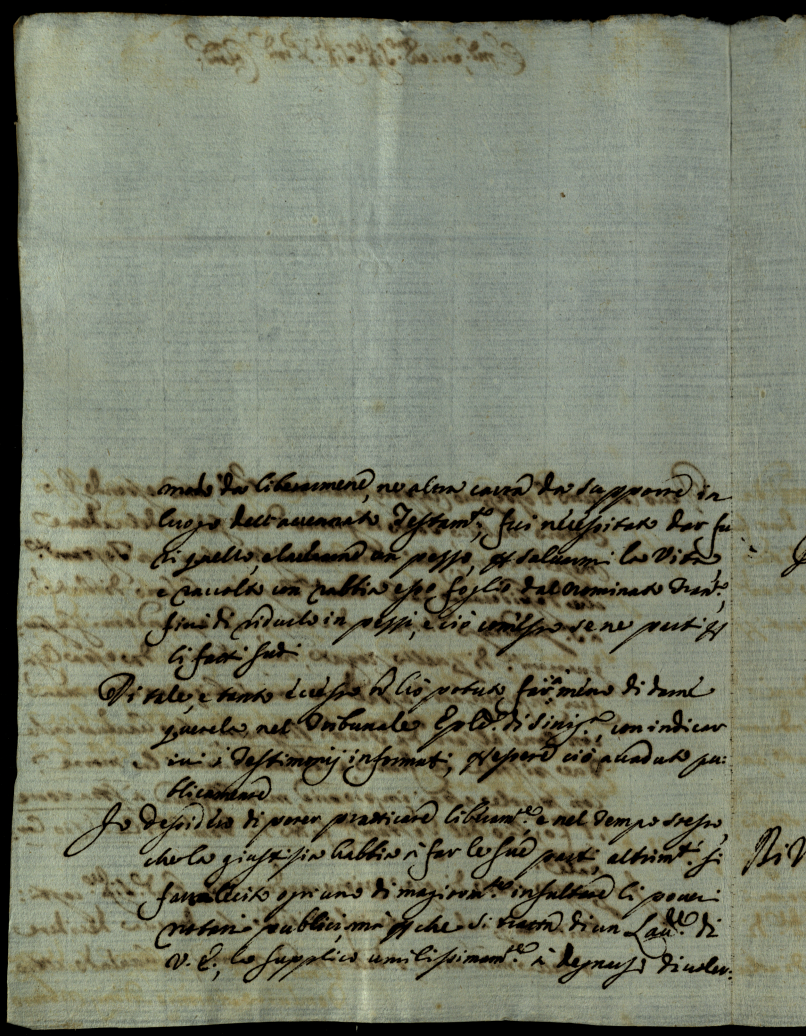 modo da liberarmene, ne altra carta da supporre in
luogo dell'accennato Testam.to, fui necessitato dar fu
ri quello, e lasciarne un pezzo, per salvarmi la Vita
e raccolto con rabbia esso foglio dal nominato
finì di ridurlo in pezzi, e ciò comesso se ne partì per
li fatti suoi
Di tale, e tanto eccesso hò Io potuto far di meno di darne
querela nel Tribunale di Sinig.a, con indicar
ivi i Testimonij informati, per essere ciò accaduto pu:
blicamente
Io desidero di poter pratticare liberam.te e nel Tempo stesso,
che la giustizia habbia à far le sue parti, altrim.ti si
farà lecito ogni uno di maggiorm.te insultare li poveri
notari publici, mà per che si tratta di un di
V. E., la supplico umilissimam.te à degnarsi di voler: